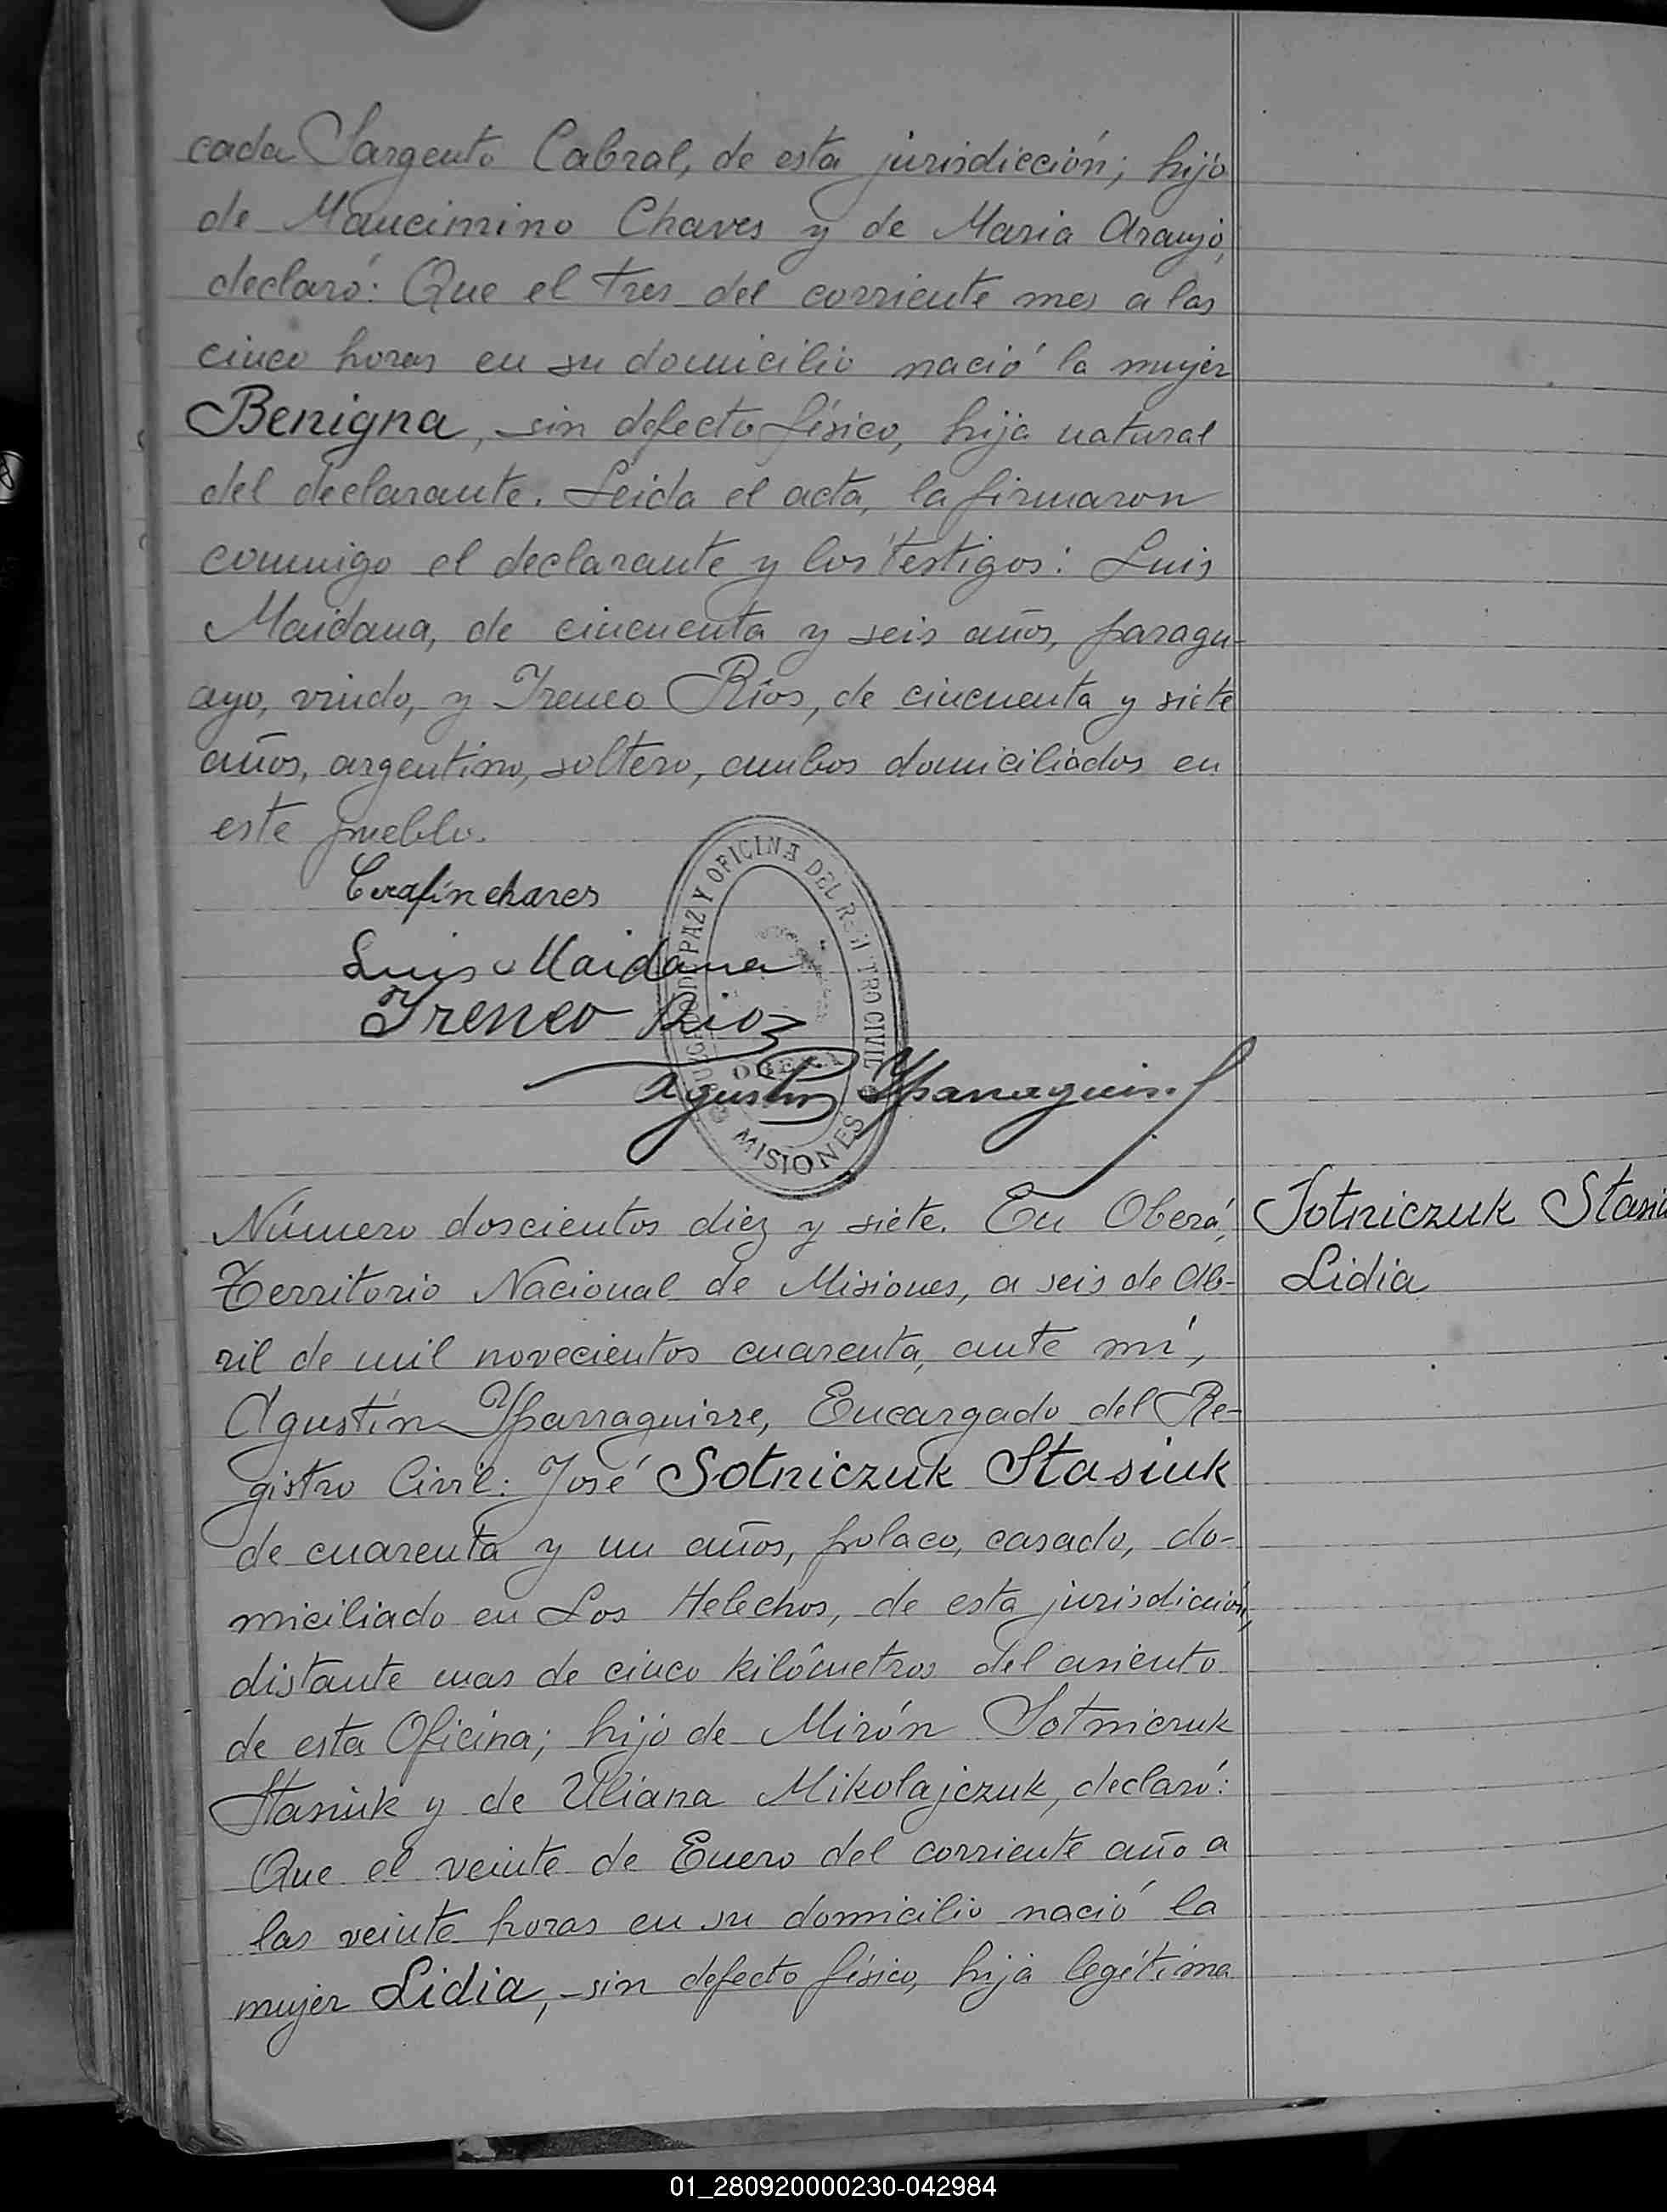 cada Sargento Cabral, de esta jurisdicción; hijo
de Maucimino Chaves y de Maria Araujo,
declaró: Que el tres del corriente mes a las
cinco horas en su domicilio nació la mujer
Benigna, sin defecto físico, hija natural
del declarante. Leida el acta, la firmaron
conmigo el declarante y los testigos: Luis
Maidana, de cincuenta y seis años, paragu-
ayo, viudo, y Ireneo Ríos, de cincuenta y siete
años, argentino, soltero, ambos domiciliados en
este pueblo.
Cerafin chares
Luis Maidana
Ireneo Rios
Agustin Yparraguirre
JUZGADO DE PAZ Y OFICINA DEL REGISTRO CIVIL
OBERA
MISIONES
Número doscientos diez y siete. En Oberá,
Territorio Nacional de Misiones, a seis de Ab-
ril de mil novecientos cuarenta, ante mí,
Agustín Yparraguirre, Encargado del Re-
gistro Civil: José Sotniczuk Stasiuk
de cuarenta y un años, polaco, casado, do-
miciliado en Los Helechos, de esta jurisdicción,
distante mas de cinco kilómetros del asiento
de esta Oficina; hijo de Mirón Sotniczuk
Stasiuk y de Uliana Mikolajczuk, declaró:
Que el veinte de Enero del corriente año a
las veinte horas en su domicilio nació la
mujer Lidia, sin defecto físico, hija legítima
Sotniczuk Stasiu
Lidia
01_280920000230-042984